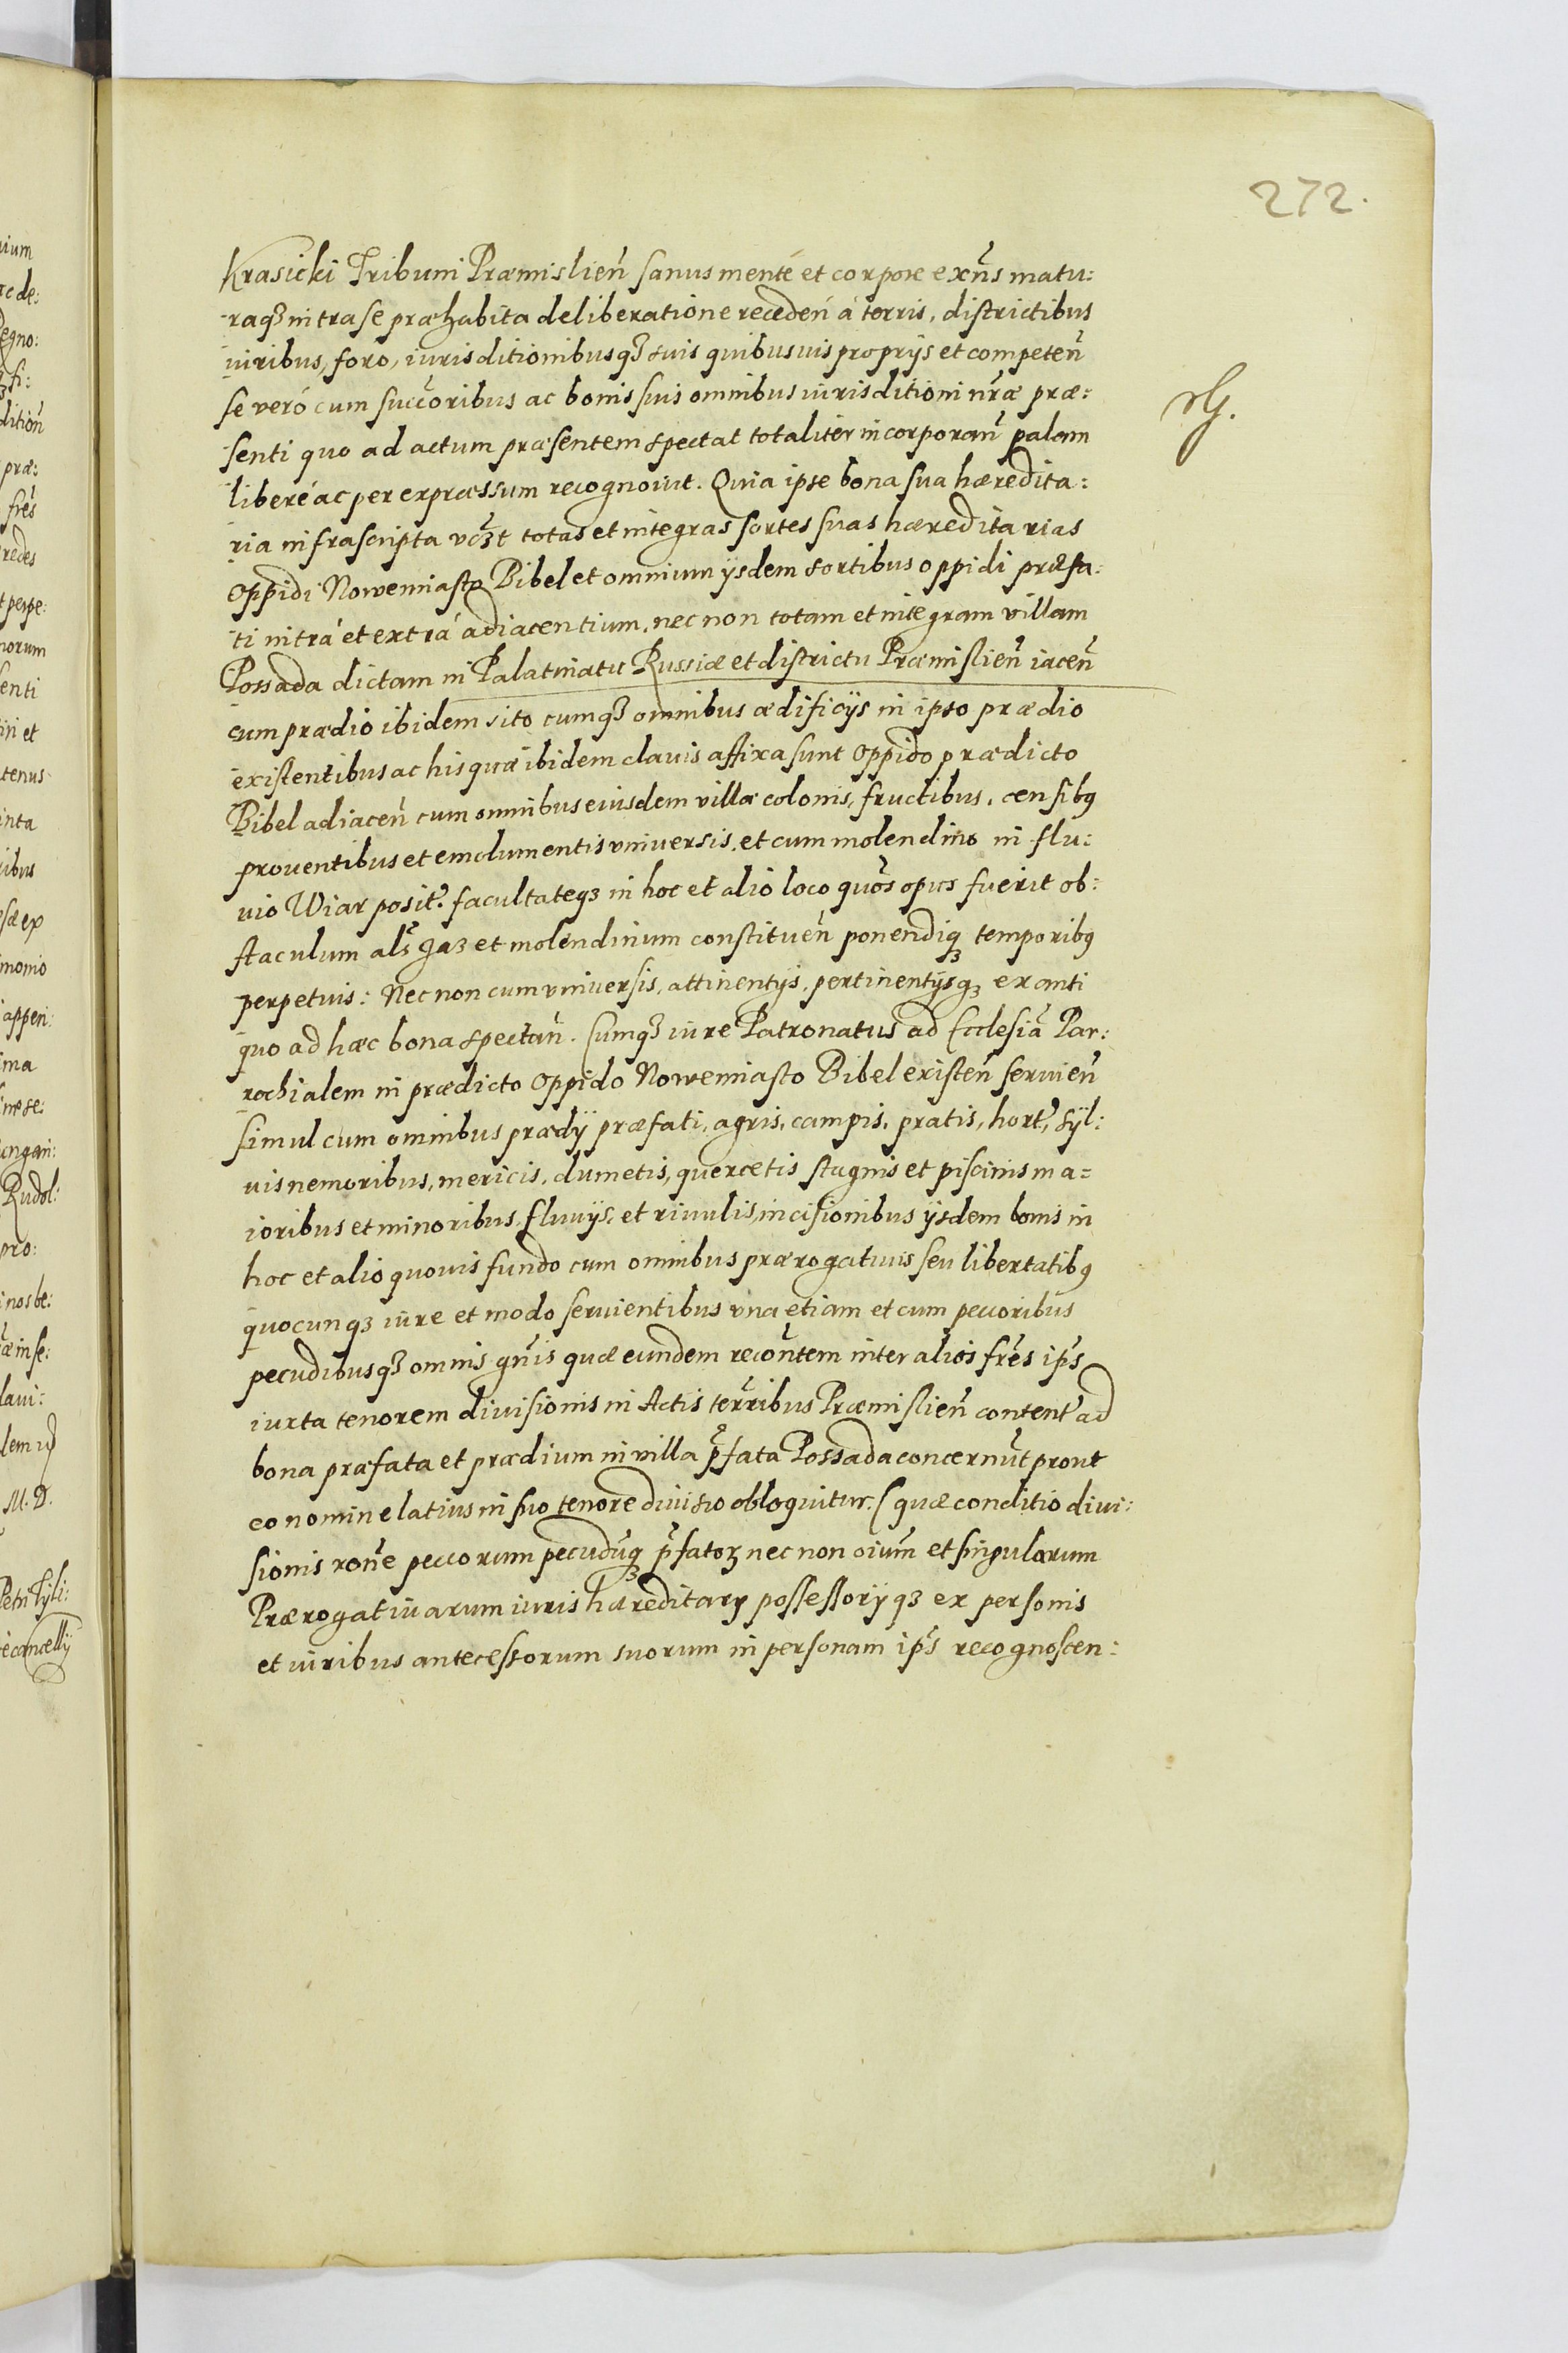 272.
Krasicki Tribuni Præmislien̄ sanus mente et corpore exn̄s matu:
raqꝫ intra se præhabita deliberatione receden̄ á terris, districtibus
iuribus, foro, iurisditionibusqꝫ suis quibusuis proprijs et competen̄
se veró cum succ̄oribus ac bonis suis omnibus iurisditioni nr̄æ præ:
senti quo ad actum præsentem spectat totaliter incorporan̄ palam
liberé ac per expræssum recognouit. Quia ipse bona sua hæredita:
ria infrascripta vcꝫt totas et integras sortes suas hæreditarias
oppidi Nowemiasto Bibel et omnium ijsdem sortibus oppidi præfa:
ti intrá et extrá adiacentium, nec non totam et integram villam
Possada dictam in Palatinatu Russiæ et districtu Præmislien̄ iacen̄
cum prædio ibidem sito cumqꝫ omnibus ædificijs in ipso prædio
existentibus ac his quæ ibidem clauis affixa sunt oppido prædicto
Bibel adiacen̄ cum omnibus eiusdem villæ colonis, fructibus, censibꝰ
prouentibus et emolumentis vniuersis, et cum molendino in flu:
uio Wiar posit. facultateqꝫ in hoc et alio loco quo᷒s opus fuerit ob:
staculum al̄s Jaz et molendinum constituen̄ ponendiqꝫ temporibꝰ
perpetuis: Nec non cum vniuersis, attinentijs, pertinentijsqꝫ ex anti
quo ad hæc bona spectan̄. Cumqꝫ iure Patronatus ad Ecclesiā Par:
rochialem in prædicto oppido Nowemiasto Bibel existen̄ seruien̄
simul cum omnibus prædij præfati, agris, campis, pratis, hort, syl:
uis nemoribus, mericis, dumetis, quercetis stagnis et piscinis ma=
ioribus et minoribus, fluuijs, et riuulis, incisionibus ijsdem bonis in
hoc et alio quouis fundo cum omnibus prærogatiuis seu libertatibꝰ
quocunqꝫ iure et modo seruientibus vna etiam et cum peccoribus
pecudibusqꝫ omnis gn̄is quæ eundem recōn̄tem inter alios fr̄es ip̄s
iuxta tenorem diuisionis in Actis terr̄ibus Præmislien̄ content ad
bona præfata et prædium in villa p̄fata Possada concernūt prout
eo nomine latius in suo tenore diuisio obloquitur. (quæ conditio diui:
sionis ron̄e peccorum pecudūqꝫ p̄fatoꝝ nec non oiūm et singularum
Prærogatiuarum iuris hæreditarij possessorijqꝫ ex personis
et iuribus antecessorum suorum in personam ip̄s recognoscen: